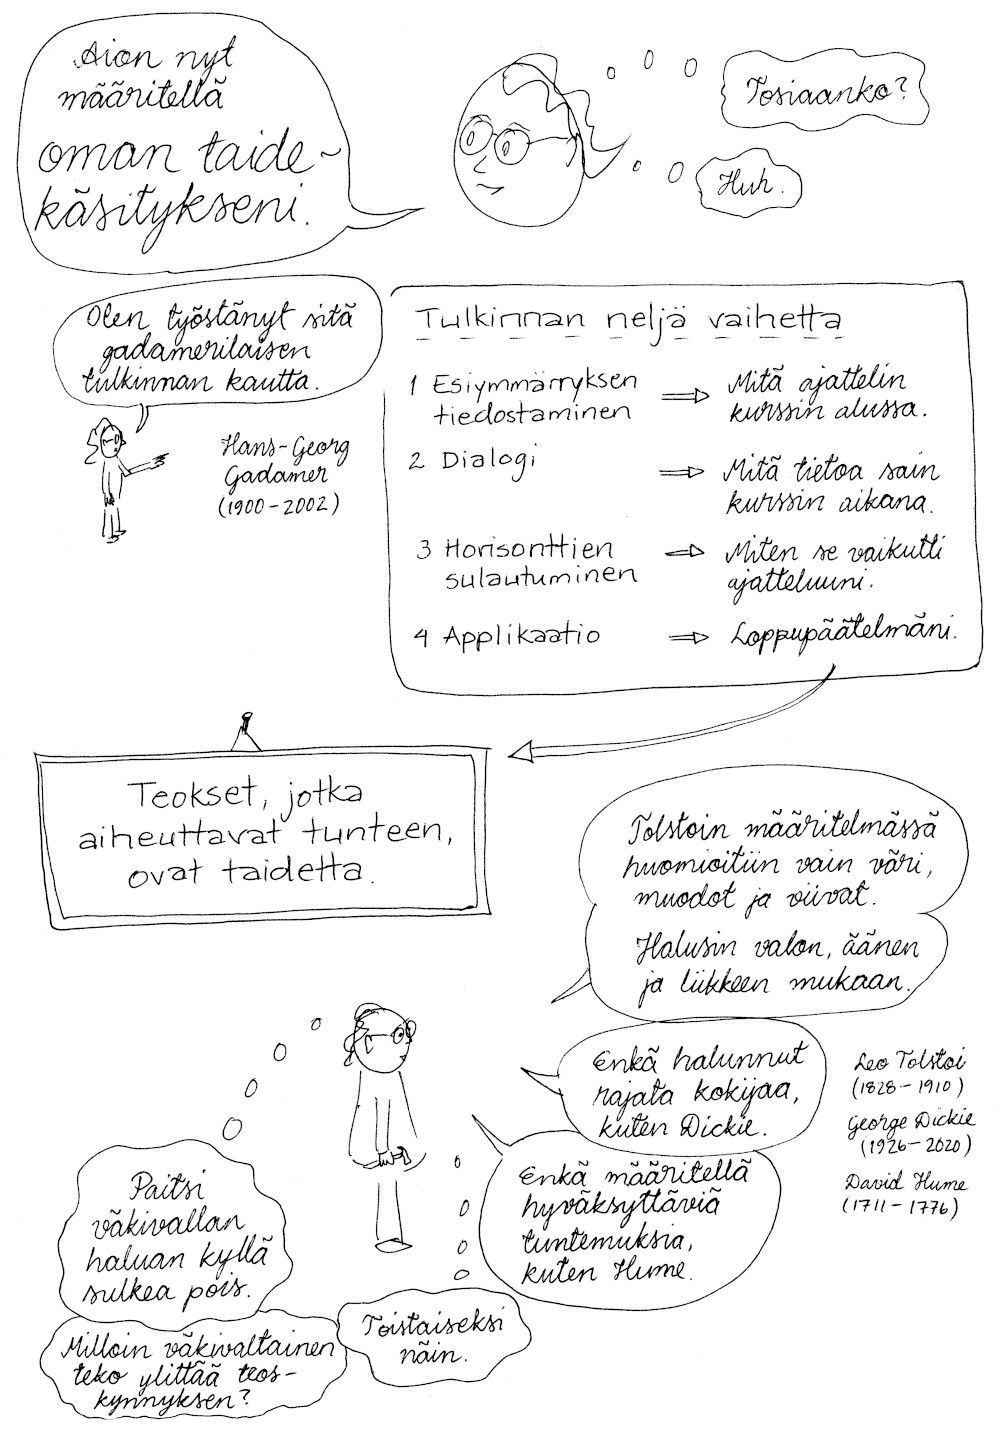 Aion nyt
määritellä
oman taide-
käsitykseni.
Tosiaanko?
Huh.
Olen työstänyt sitä
gadamerilaisen
tulkinnan kautta.
Hans-Georg
Gadamer
(1900-2002)
Tulkinnan neljä vaihetta
1 Esiymmärryksen
tiedostaminen
⇒ Mitä ajattelin
kurssin alussa.
2 Dialogi
⇒ Mitä tietoa sain
kurssin aikana.
3 Horisonttien
sulautuminen
⇒ Miten se vaikutti
ajatteluuni.
4 Applikaatio ⇒ Loppupäätelmäni.
Teokset, jotka
aiheuttavat tunteen,
ovat taidetta.
Tolstoin määritelmässä
huomioitiin vain väri,
muodot ja viivat.
Halusin valon, äänen
ja liikkeen mukaan.
Enkä halunnut
rajata kokijaa,
kuten Dickie.
Leo Tolstoi
(1828-1910)
George Dickie
(1926-2020)
David Hume
(1711-1776)
Enkä määritellä
hyväksyttäviä
tuntemuksia,
kuten Hume.
Paitsi
väkivallan
haluan kyllä
sulkea pois.
Milloin väkivaltainen
teko ylittää teos-
kynnyksen?
Toistaiseksi
näin.